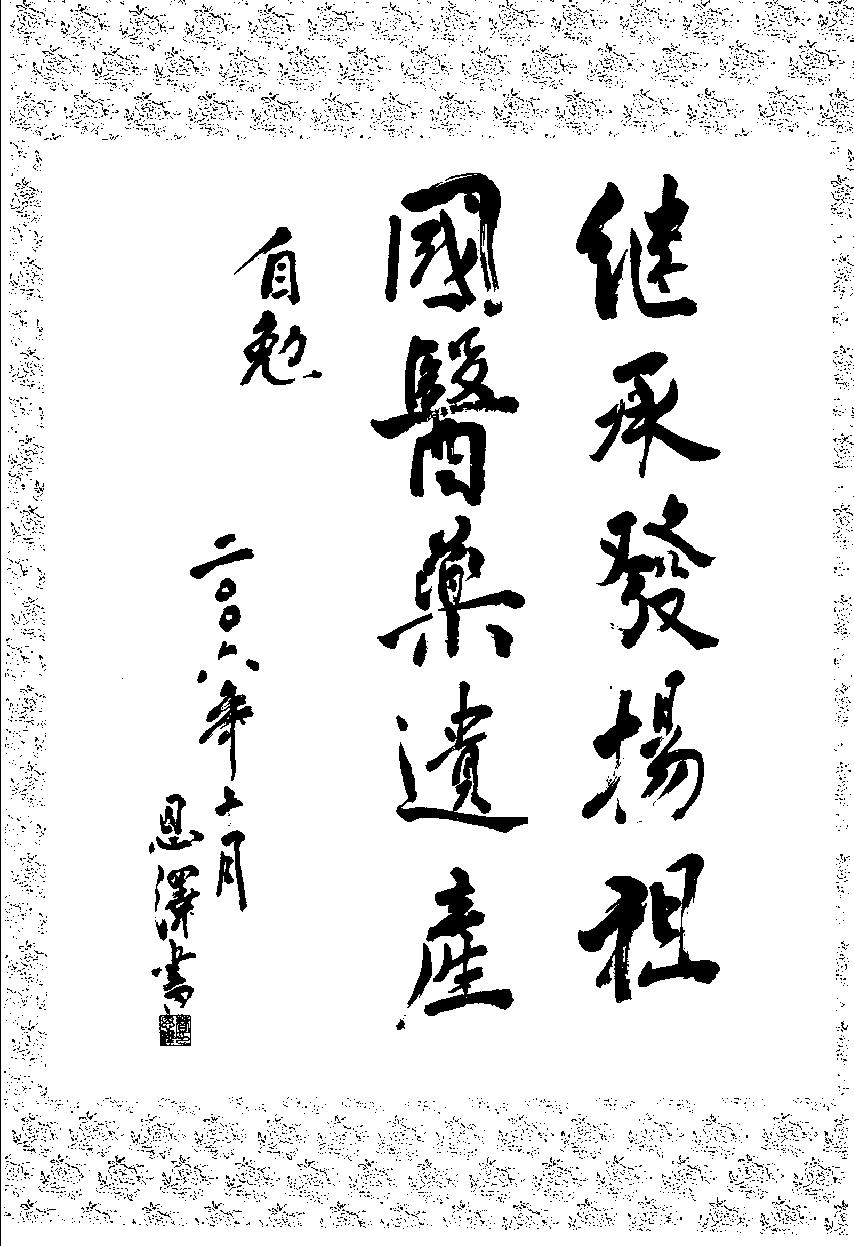 继承發揚祖
國醫藥遺產
自勉
二〇〇六年十一月
恩澤書